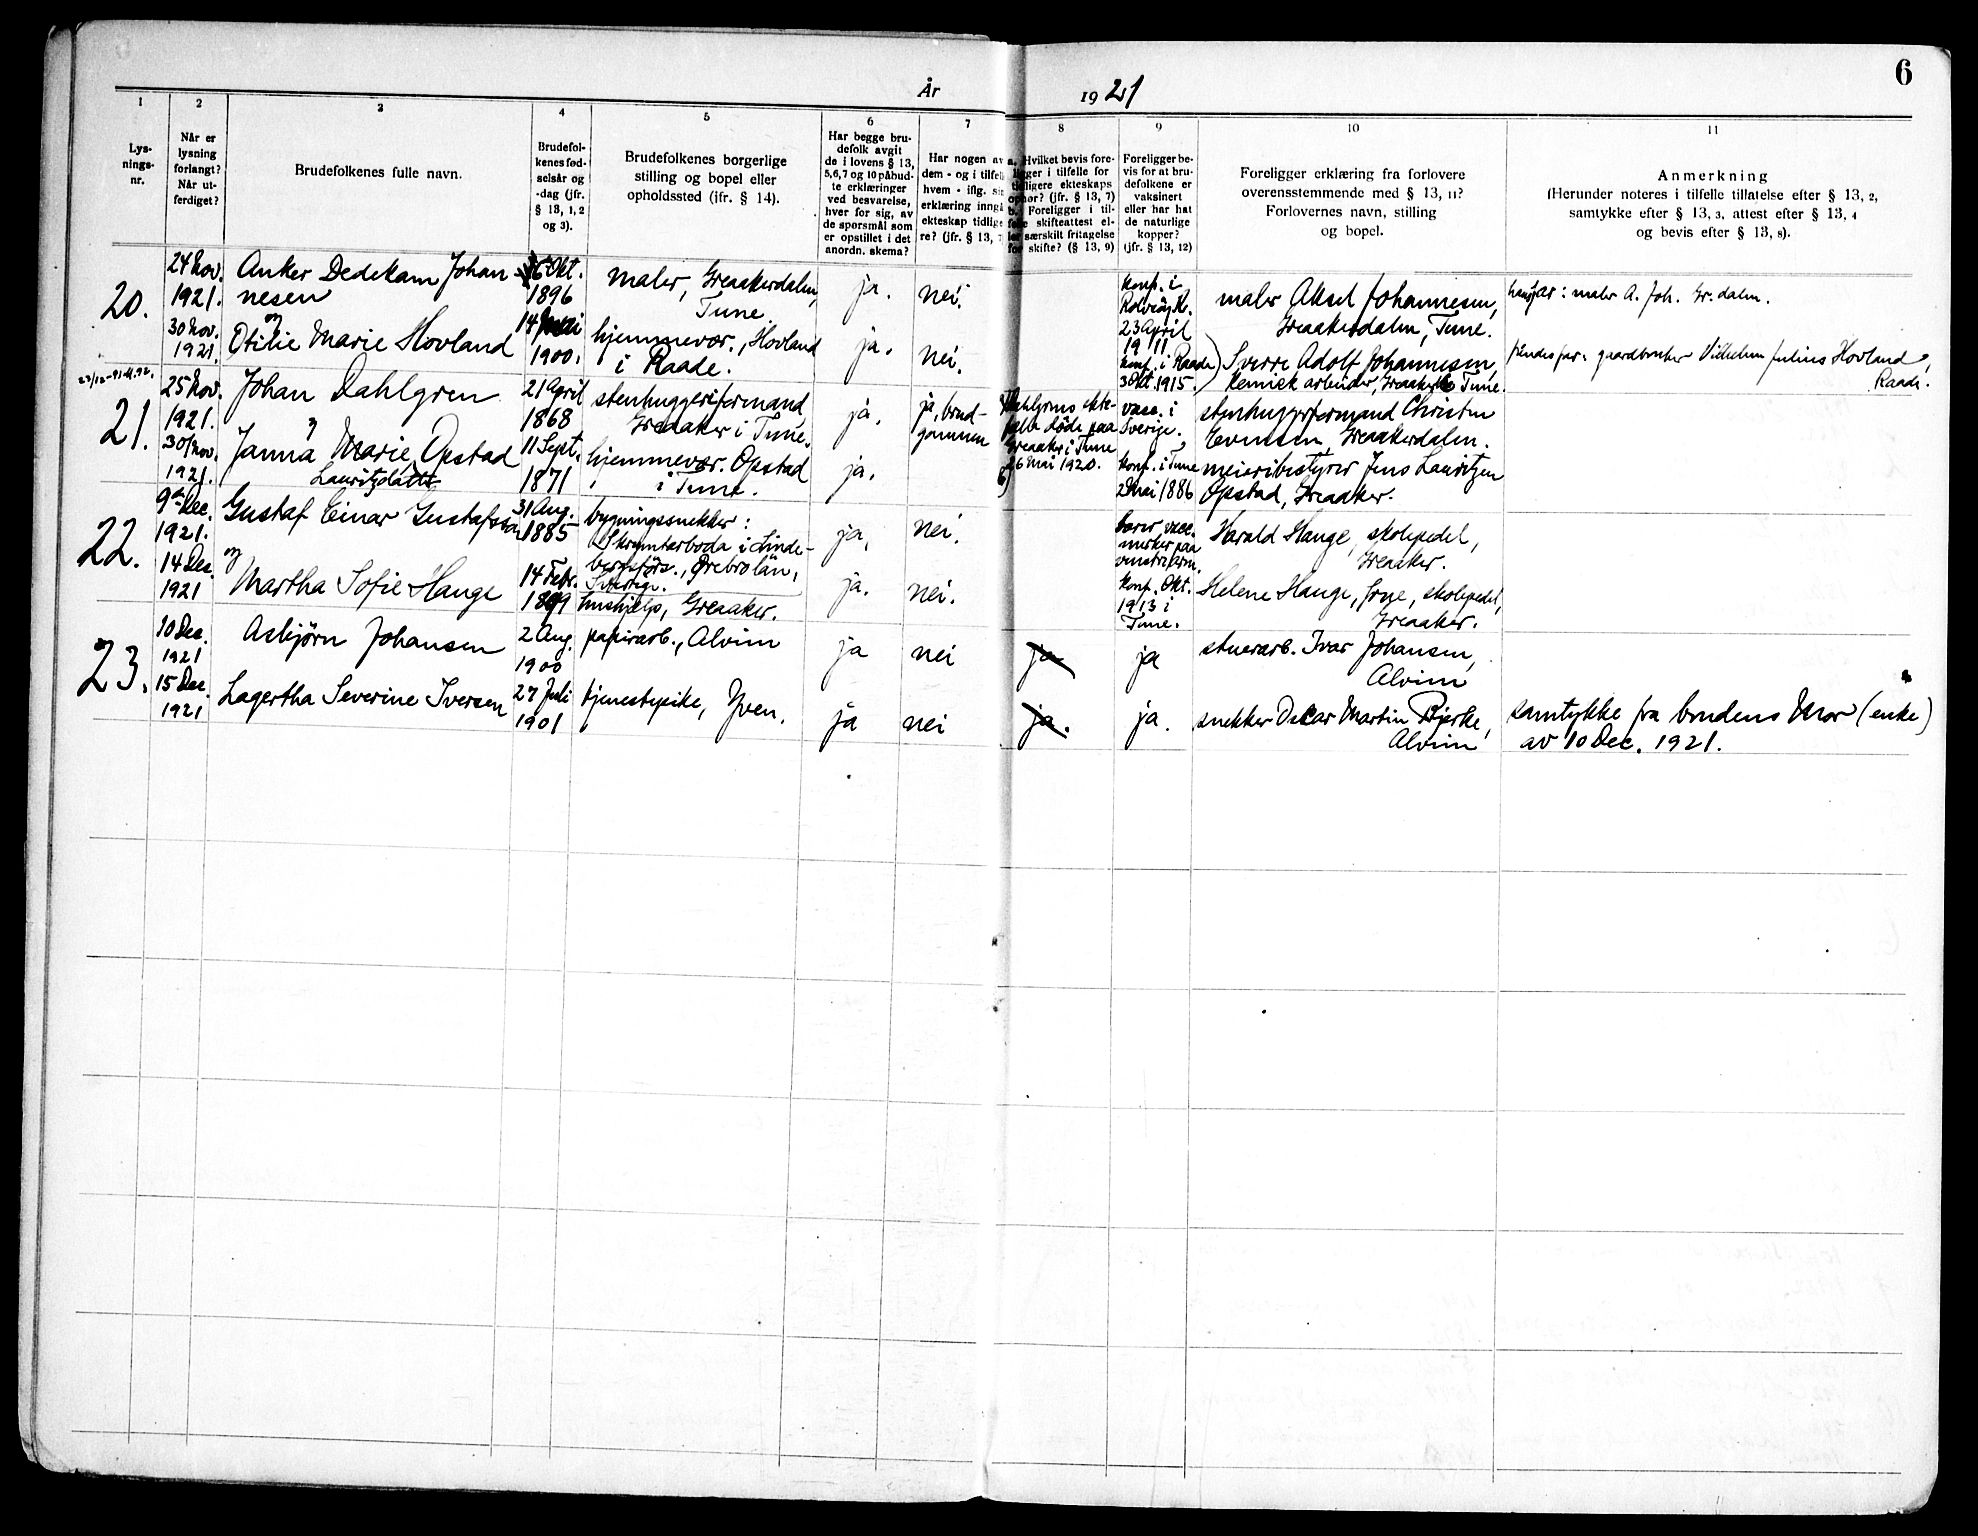 6
År 1921
1
2
3
4
5
6
7
8
9
10
11
Lys-
nings-
nr.
Når er
lysning
forlangt?
Når ut-
ferdiget?
Brudefolkenes fulle navn.
Brudefol-
kenes fød-
selsår og
-dag (jfr.
§ 13, 1, 2
og 3).
Brudefolkenes borgerlige
stilling og bopel eller
opholdssted (jfr. § 14).
Har begge bru-
defolk avgit
de i lovens § 13,
5,6,7 og 10 påbud-
te erklæringer
ved besvarelse,
hver for sig, av
de spørsmål som
er opstillet i det
anordn. skema?
Har nogen av
dem - og i tilfelle
hvem - iflg. sin
erklæring inngå
ekteskap tidlige
re? (jfr. § 13, 7
a. Hvilket bevis fore-
ligger i tilfelle for
tidligere ekteskaps
ophør? (jfr. § 13, 7)
b. Foreligger i til-
felle skifteattest el-
ler særskilt fritagelse
for skifte? (§ 13, 9)
Foreligger be-
vis for at bru-
defolkene er
vaksinert
eller har hat
de naturlige
kopper?
(jfr. § 13, 12)
Foreligger erklæring fra forlovere
overensstemmende med § 13, 11?
Forlovernes navn, stilling
og bopel.
Anmerkning
(Herunder noteres i tilfelle tillatelse efter § 13, 2,
samtykke efter § 13, 3, attest efter § 13, 4
og bevis efter § 13, 8).
20.
24 Nov.
1921.
30 Nov.
1921
Anker Dedekam Johan-
nesen
og
Otilie Marie Hovland
6 Okt.
1896
14 Mai
1900.
maler, Greaakerdalen,
Tune.
hjemmevær., Hovland
i Raade.
ja.
ja.
nei.
nei.
konf. i
Rolvsøy K.
23 April
1911
konf. i Raade
3 Okt. 1915.
maler Aksel Johannesen,
Greaakerdalen, Tune.
Sverre Adolf Johannesen,
kemisk arbeider, Greaaker, Tune.
hans far: maler A. Joh. Gr. dalen.
hendes far: gaardbruker Vilhelm Julius Hovland,
Raade.
21.
25 Nov.
1921.
30 Nov.
1921.
Johan Dahlgren
og
Janna Marie Opstad
Lauritzdatter
21 April
1868
11 Sept.
1871
stenhuggeriformand
Greaaker i Tune.
hjemmevær. Opstad
i Tune.
ja.
ja.
ja, brud-
gommen
a) Dahlgrens ekte-
fælle døde paa
Greaaker i Tune
26 Mai 1920.
b)
vacc. i
Sverige.
konf. i Tune
2 Mai 1886
stenhuggerformand Christen
Evensen, Greaakerdalen.
meieribestyrer Jens Lauritzen
Opstad, Greaaker.
22.
9de Dec.
1921.
14 Dec.
1921
Gustaf Einar Gustafsson
og
Martha Sofie Hauge
31 Aug.
1885
14 Febr.
1899
bygningssnekker:
Skrymtarboda i Linde-
bergsförs., Ørebrolän,
Sverige.
hushjelp, Greaaker.
ja.
ja.
nei.
nei.
bærer vacc.
merker paa
venstre arm.
konf. Okt.
1913 i
Tune.
Harald Hauge, skolepedel,
Greaaker.
Helene Hauge, frue, skolepedel,
Greaaker.
23.
10 Dec.
1921
15 Dec.
1921
Asbjörn Johansen
Lagertha Severine Iversen
2 Aug.
1900
27 Juli
1901
papirarb., Alvim
tjenestepike, Yven.
ja
ja
nei
nei
ja
ja.
ja
ja.
stuerarb. Ivar Johansen,
Alvim
snekker Oskar Martin Bjerke,
Alvim
samtykke fra brudens Mor (enke)
av 10 Dec. 1921.